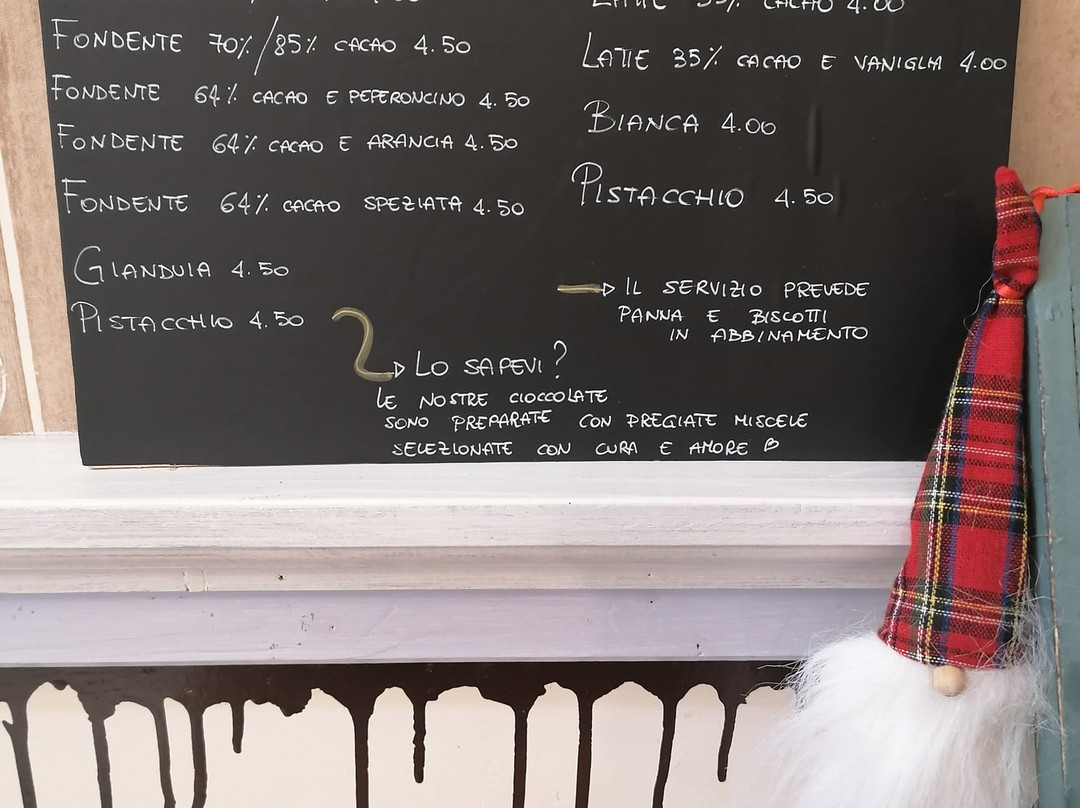 FONDENTE 70%/85% CACAO 4.50
FONDENTE 64% CACAO E PEPERONCINO 4.50
FONDENTE 64% CACAO E ARANCIA 4.50
FONDENTE 64% CACAO SPEZIATA 4.50
GIANDUIA 4.50
PISTACCHIO 4.50
LATTE 35% CACAO 4.00
LATTE 35% CACAO E VANIGLIA 4.00
BIANCA 4.00
PISTACCHIO 4.50
IL SERVIZIO PREVEDE
PANNA E BISCOTTI
IN ABBINAMENTO
LO SAPEVI?
LE NOSTRE CIOCCOLATE
SONO PREPARATE CON PREGIATE MISCELE
SELEZIONATE CON CURA E AMORE